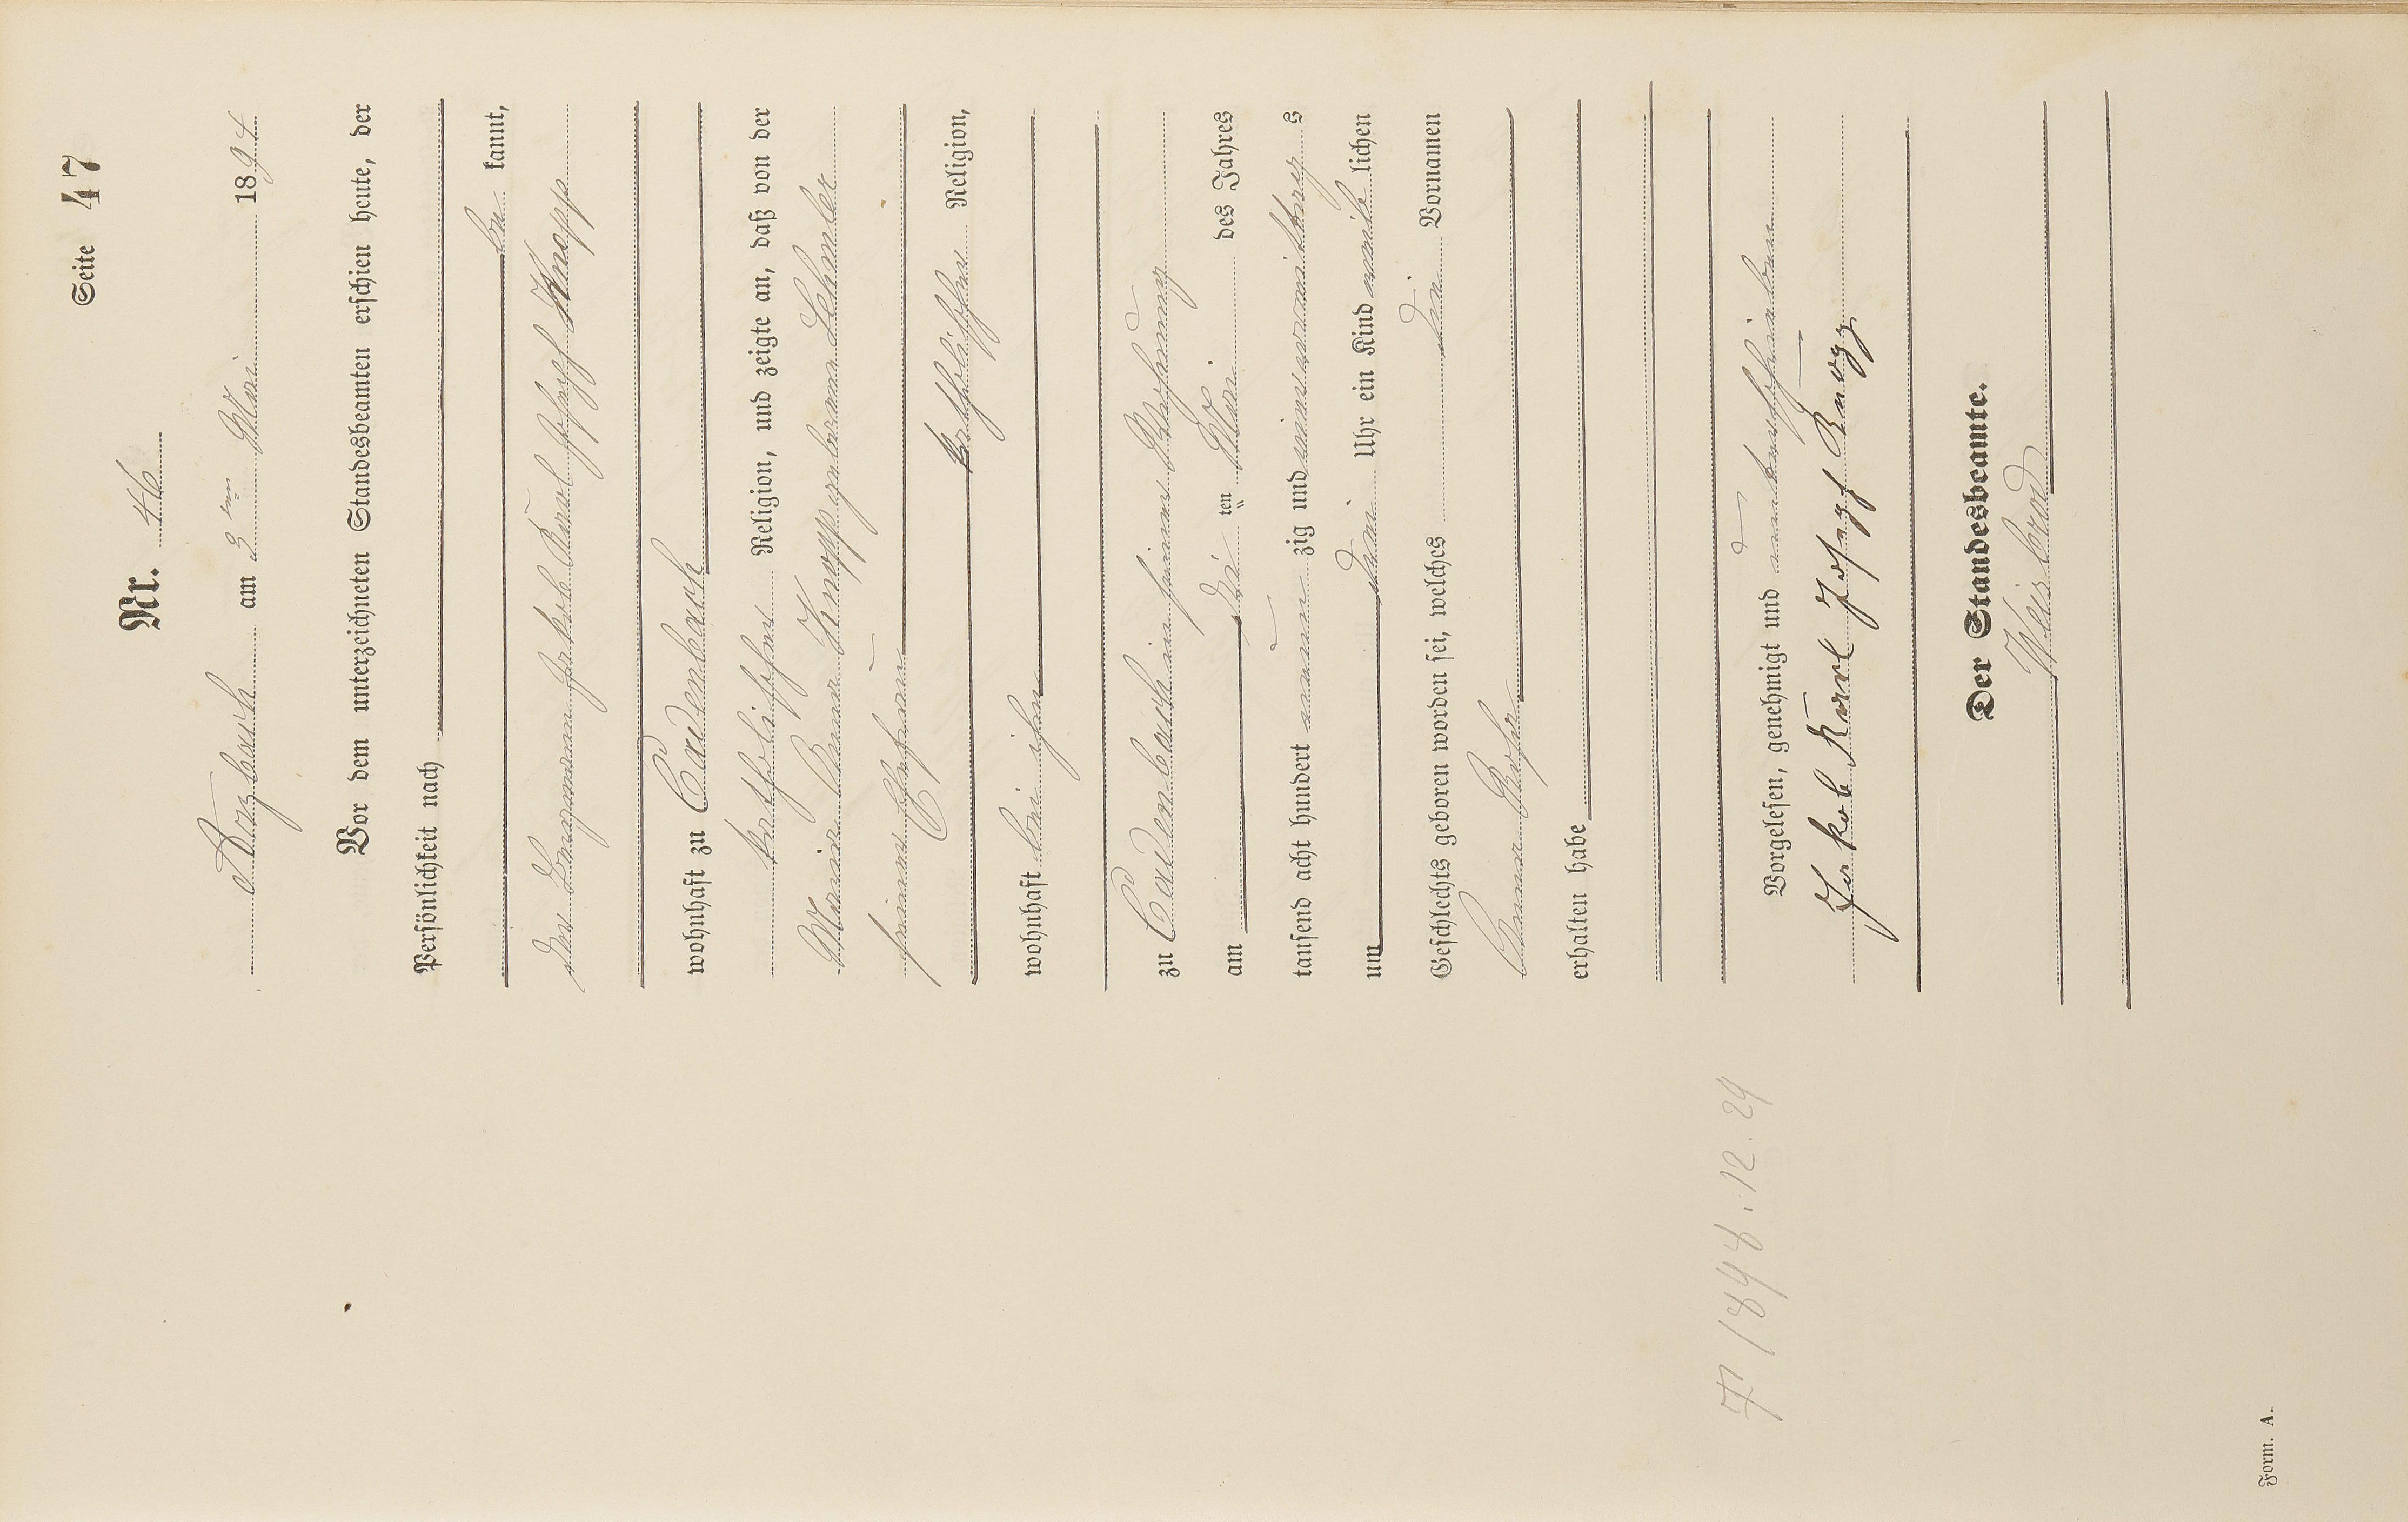 Seite 47
Nr. 46
Dorzbach am 3ten Mai 1894
Vor dem unterzeichneten Standesbeamten erschien heute, der
Persönlichkeit nach
be kannt,
der Bergmann Jakob Karl Joseph Knopp
wohnhaft zu Cadenbach
katholischer Religion, und zeigte an, daß von der
Maria Anna Knopp geborene Lehmler
seiner Ehefrau
katholischer Religion,
wohnhaft bei ihm
zu Cadenbach in seiner Wohnung
am drei ten Mai des Jahres
tausend acht hundert neun zig und vier vormittags
um drei Uhr ein Kind weib lichen
Geschlechts geboren worden sei, welches den Vornamen
Anna Rosa
erhalten habe
Vorgelesen, genehmigt und unterschrieben
Jakob Karl Josepf Knopp
Der Standesbeamte.
Weisbrod
12.24
Form. A.